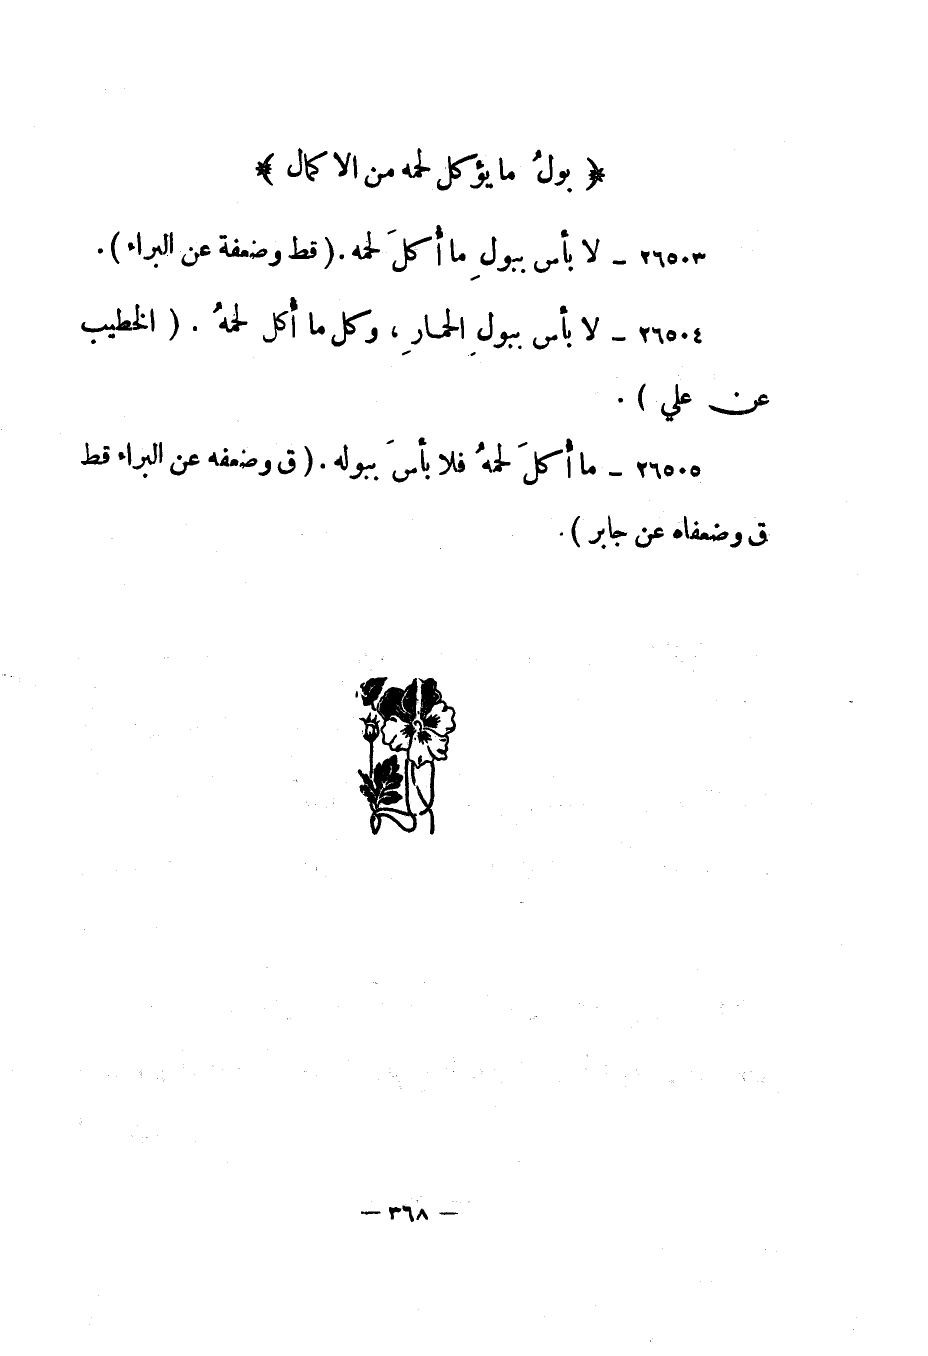 ﴿ بولُ ما يؤكل لحمه من الاكمال ﴾
٢٦٥٠٣ ـ لا بأس ببولِ ما أُكلَ لحمه . ( قط وضعفة عن البراء ) .
٢٦٥٠٤ ـ لا بأس ببولِ الحمارِ ، وكل ما أُكل لحمهُ . ( الخطيب
عن علي ) .
٢٦٥٠٥ ـ ما أُكلَ لحمهُ فلا بأسَ ببوله . ( ق وضعفه عن البراء قط
ق وضعفاه عن جابر ) .
— ٣٦٨ —